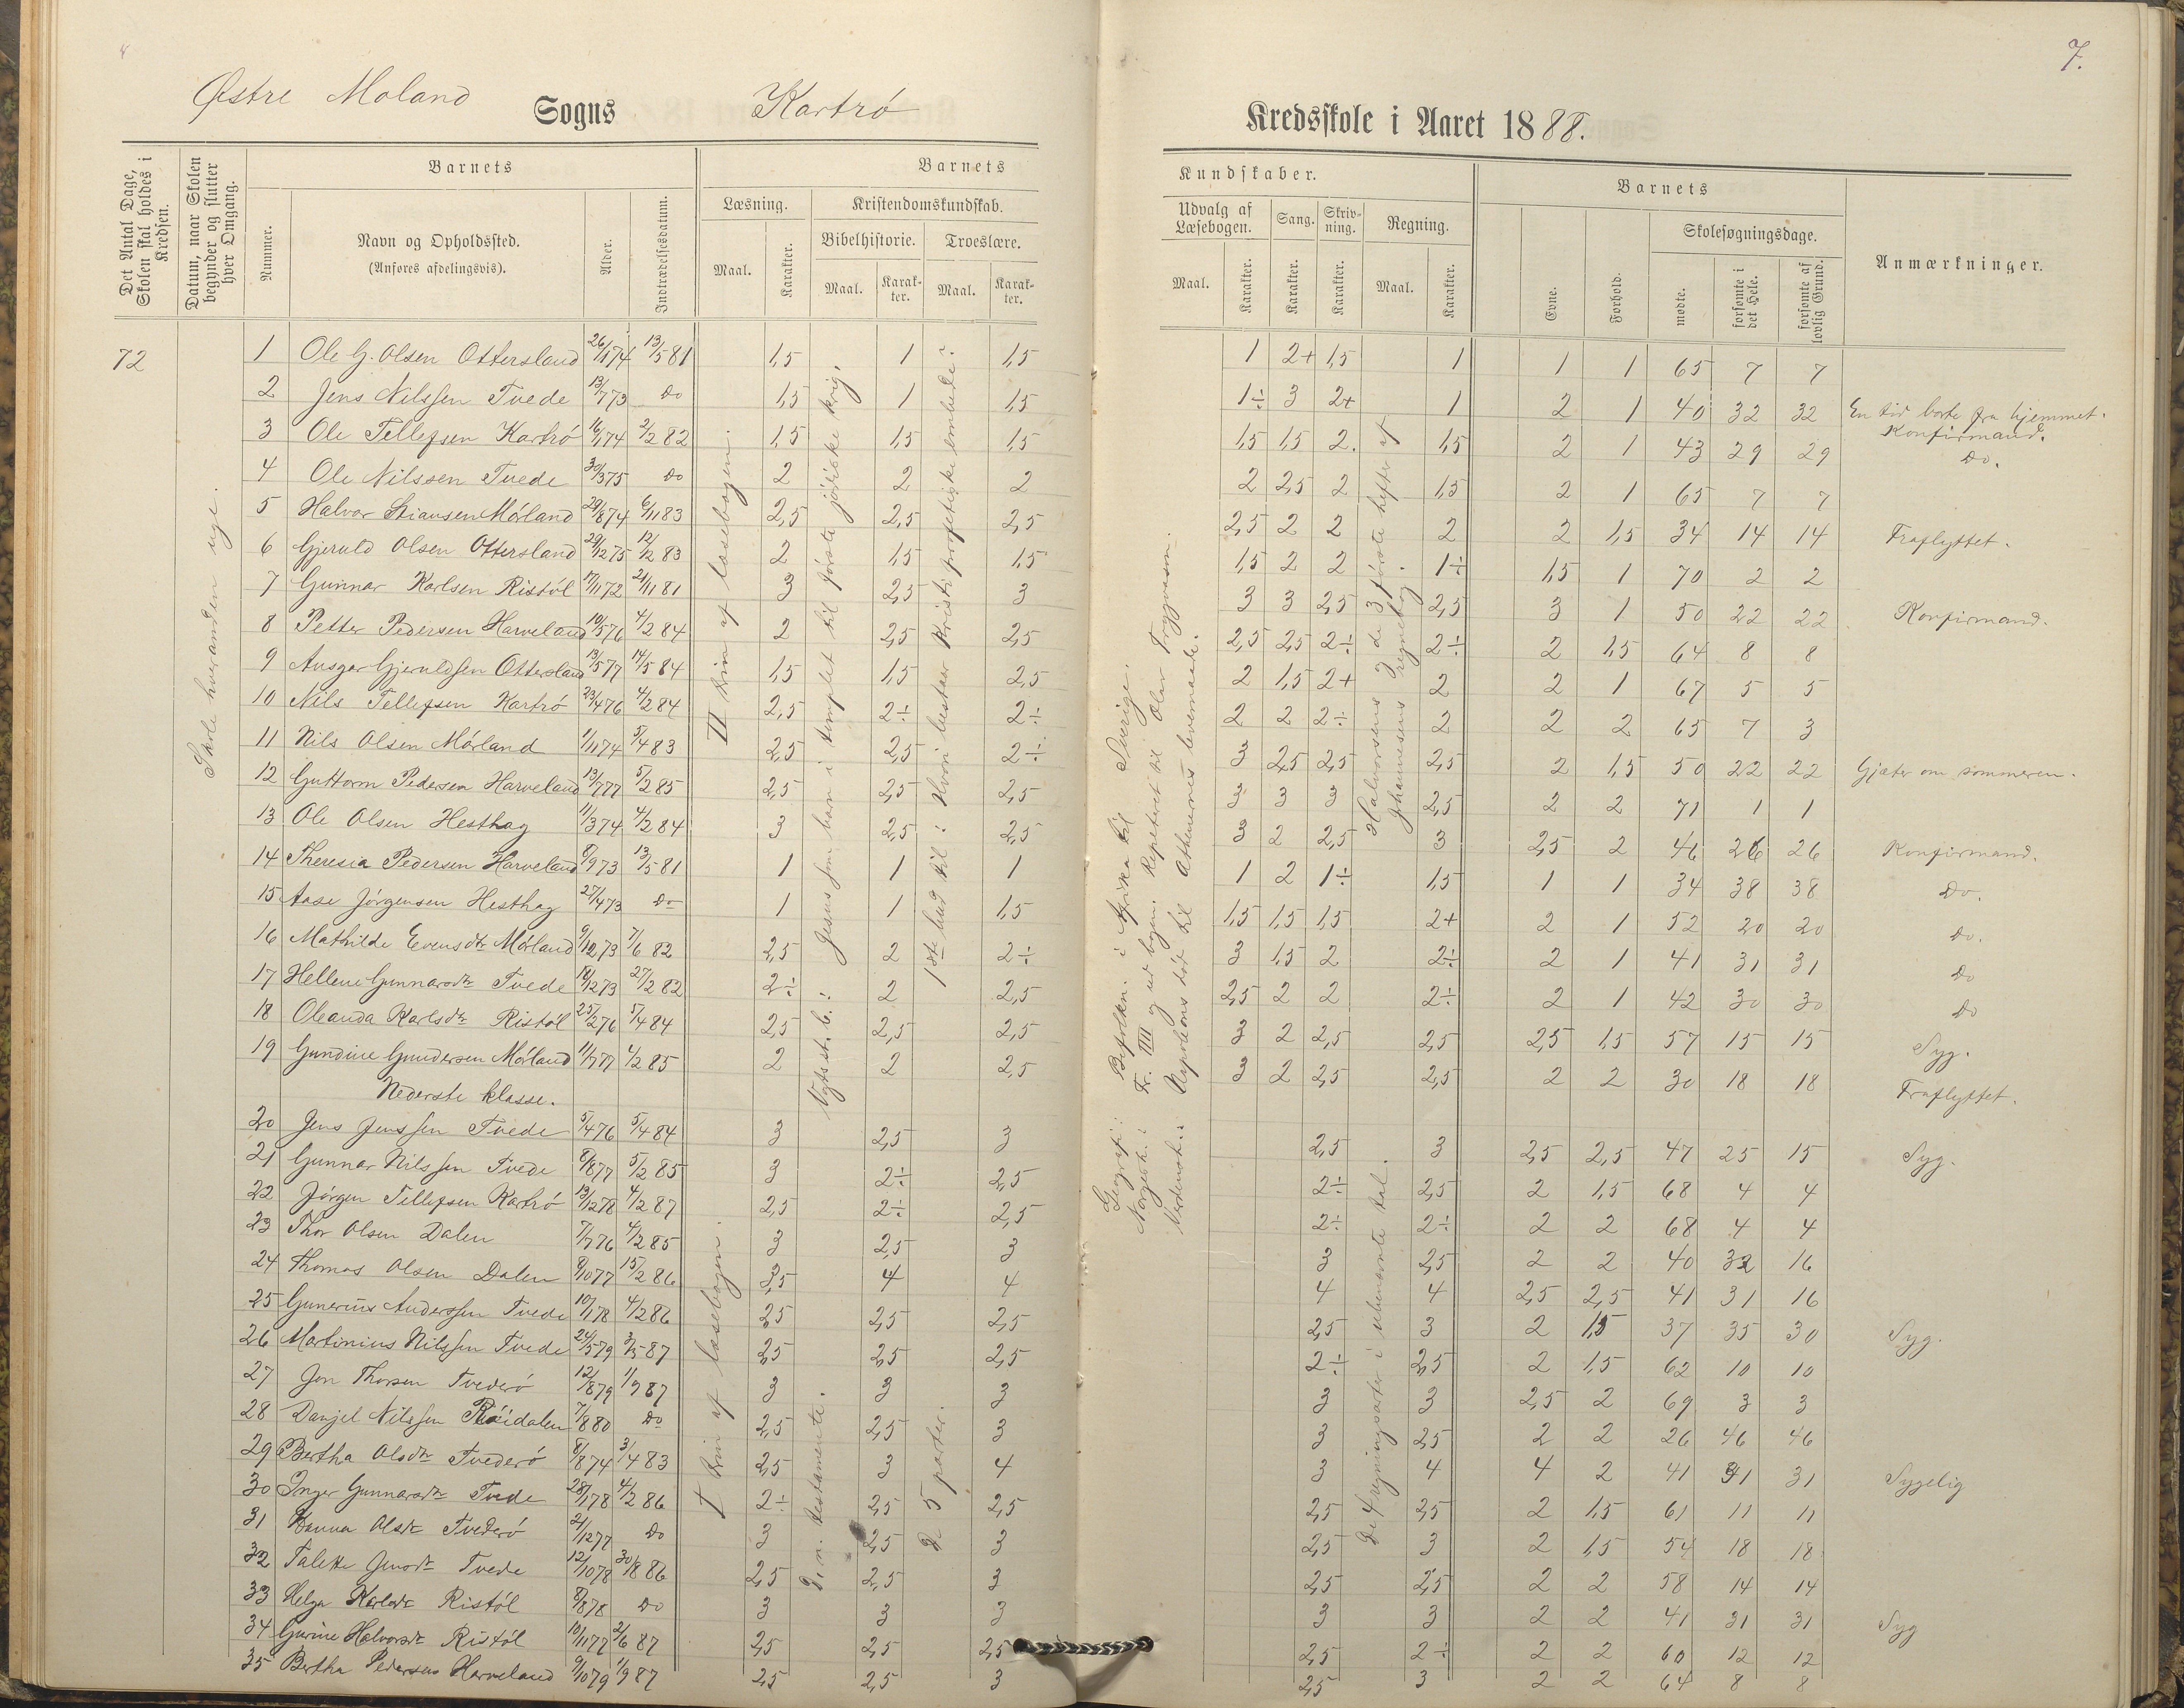 7.
Østre Moland Sogns Kartrö Kredsskole i Aaret 1888.
Det Antal Dage, Skolen skal holdes i Kredsen.
Datum, naar Skolen begynder og slutter hver Omgang.
Barnets
Nummer.
Navn og Opholdssted.
(Anføres afdelingsvis).
Alder.
Indtrædelsesdatum.
Barnets Kundskaber.
Læsning. Kristendomskundskab.
Maal. Karakter. Bibelhistorie. Troeslære.
Maal. Karakter. Maal. Karakter.
Udvalg af Læsebogen. Sang. Skrivning. Regning.
Maal. Karakter. Karakter. Karakter. Maal. Karakter.
Barnets
Evne. Forhold. Skolesøgningsdage.
mødte. forsømte i det Hele. forsømte af lovlig Grund.
Anmærkninger.
72
Skole hveranden uge.
1 Ole G. Olsen Ottersland 26/1 74 13/5 81 1,5 1 1,5 1 2+ 1,5 1 1 1 65 7 7
2 Jens Nilssen Tvede 13/7 73 Do 1,5 1 1,5 1÷ 3 2+ 1 2 1 40 32 32 En tid borte fra hjemmet. Konfirmand.
3 Ole Tellefsen Kartrö 16/1 74 2/2 82 1,5 1,5 1,5 1,5 1,5 2. 1,5 2 1 43 29 29 Do.
4 Ole Nilssen Tvede 30/3 75 Do 2 2 2 2 2,5 2 1,5 2 1 65 7 7
5 Halvor Stiansen Mörland 29/8 74 6/11 83 2,5 2,5 2,5 2,5 2 2 2 2 1,5 34 14 14 Fraflyttet.
6 Gjeruld Olsen Ottersland 29/12 75 12/12 83 2 1,5 1,5 1,5 2 2 1÷ 1,5 1 70 2 2
7 Gunnar Karlsen Ristöl 17/11 72 21/11 81 3 2,5 3 3 3 2,5 2,5 3 1 50 22 22 Konfirmand.
8 Petter Pedersen Harveland 10/5 76 4/2 84 2 2,5 2,5 2,5 2,5 2÷ 2÷ 2 1,5 64 8 8
9 Ansgar Gjeruldsen Ottersland 13/5 77 14/5 84 1,5 1,5 2,5 2 1,5 2+ 2 2 1 67 5 5
10 Nils Tellefsen Kartrö 23/4 76 4/2 84 2,5 2÷ 2÷ 2 2 2÷ 2 2 2 65 7 3
11 Nils Olsen Mörland 1/11 74 5/4 83 2,5 2,5 2÷ 3 2,5 2,5 2,5 2 1,5 50 22 22 Gjæter om sommeren.
12 Guttorm Pedersen Harveland 13/7 77 5/2 85 2,5 2,5 2,5 3 3 3 2,5 2 2 71 1 1
13 Ole Olsen Hesthag 11/3 74 4/2 84 3 2,5 2,5 3 2 2,5 3 2,5 2 46 26 26 Konfirmand.
14 Theresia Pedersen Harveland 8/9 73 13/5 81 1 1 1 1 2 1÷ 1,5 1 1 34 38 38 Do.
15 Aase Jörgensen Hesthag 27/4 73 Do 1 1 1,5 1,5 1,5 1,5 2+ 2 1 52 20 20 Do.
16 Mathilde Evensdtr Mörland 9/12 73 7/6 82 2,5 2 2÷ 3 1,5 2 2÷ 2 1 41 31 31 Do
17 Hellene Gunnarsdtr Tvede 18/12 73 27/2 82 2÷ 2 2,5 2,5 2 2 2÷ 2 1 42 30 30 Do
18 Oleanda Karlsdtr Ristöl 25/2 76 5/4 84 2,5 2,5 2,5 3 2 2,5 2,5 2,5 1,5 57 15 15 Syg.
19 Gundine Gundersen Mörland 11/7 77 4/2 85 2 2 2,5 3 2 2,5 2,5 2 2 30 18 18 Fraflyttet.
Nederste klasse.
20 Jens Jenssen Tvede 5/4 76 5/4 84 3 2,5 3 2,5 3 2,5 2,5 47 25 15 Syg.
21 Gunnar Nilssen Tvede 8/8 77 5/2 85 3 2÷ 2,5 2÷ 2,5 2 1,5 68 4 4
22 Jörgen Tellefsen Kartrö 13/12 78 4/2 87 2,5 2÷ 2,5 2÷ 2÷ 2 2 68 4 4
23 Thor Olsen Dalen 7/7 76 4/2 85 3 2,5 3 3 2,5 2 2 40 32 16
24 Thomas Olsen Dalen 8/10 77 15/2 86 3,5 4 4 4 4 2,5 2,5 41 31 16
25 Gunerius Anderssen Tvede 10/1 78 4/2 86 2,5 2,5 2,5 2,5 3 2 1,5 37 35 30 Syg.
26 Martinius Nilssen Tvede 24/5 79 3/5 87 2,5 2,5 2,5 2÷ 2,5 2 1,5 62 10 10
27 Jon Thorsen Tvederö 12/8 79 1/9 87 3 3 3 3 3 2,5 2 69 3 3
28 Danjel Nilssen Röidalen 7/8 80 Do 2,5 2,5 3 3 2,5 2 2 26 46 46
29 Bertha Olsdtr Tvederö 8/8 74 3/4 83 2,5 3 4 3 4 4 2 41 31 31 Sygelig
30 Inger Gunnarsdtr Tvede 28/1 78 4/2 86 2÷ 2,5 2,5 2,5 2,5 2 1,5 61 11 11
31 Hanna Olsdtr Tvederö 21/12 77 Do 3 2,5 3 2,5 3 2 1,5 54 18 18
32 Talette Jensdtr Tvede 12/10 78 30/8 86 2,5 2,5 3 2,5 2,5 2 2 58 14 14
33 Helga Karlsdtr Ristöl 8/8 78 Do 3 3 3 3 3 2 2 41 31 31 Syg
34 Gurine Halvorsdtr Ristöl 10/11 77 2/6 87 2,5 2,5 2,5 2,5 2÷ 2 2 60 12 12
35 Bertha Pedersen Harveland 9/10 79 1/9 87 2,5 2,5 3 2,5 3 2 2 64 8 8
II trin af læsebogen.
Jesus som barn i templet til første jödiske krig.
1ste bud til: Hvori bestaar Kristi profetiske embede?
Geografi: Befolkn. i Afrika til Sverige.
Norgesh.: Fr. IIII og ud bogen. Repeteret til Olav Trygvason.
Verdensh.: Napoleons död til Athenernes levemaade.
Halvorsens 2 de 3 første hefter af Johannesens regnebog.
I trin af læsebogen.
D. n. testamente.
D 5 parter.
De 4 regningsarter i ubenævnte tal.